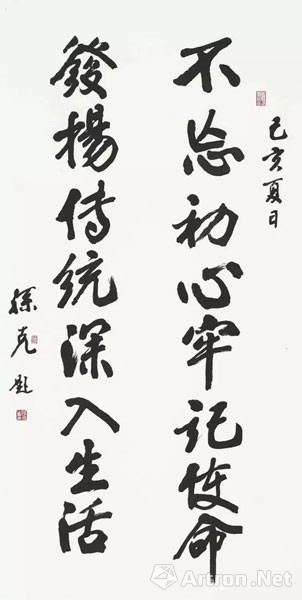 己亥夏日
不忘初心牢记使命
發揚傳统深入生活
孫克題
Artron.Net